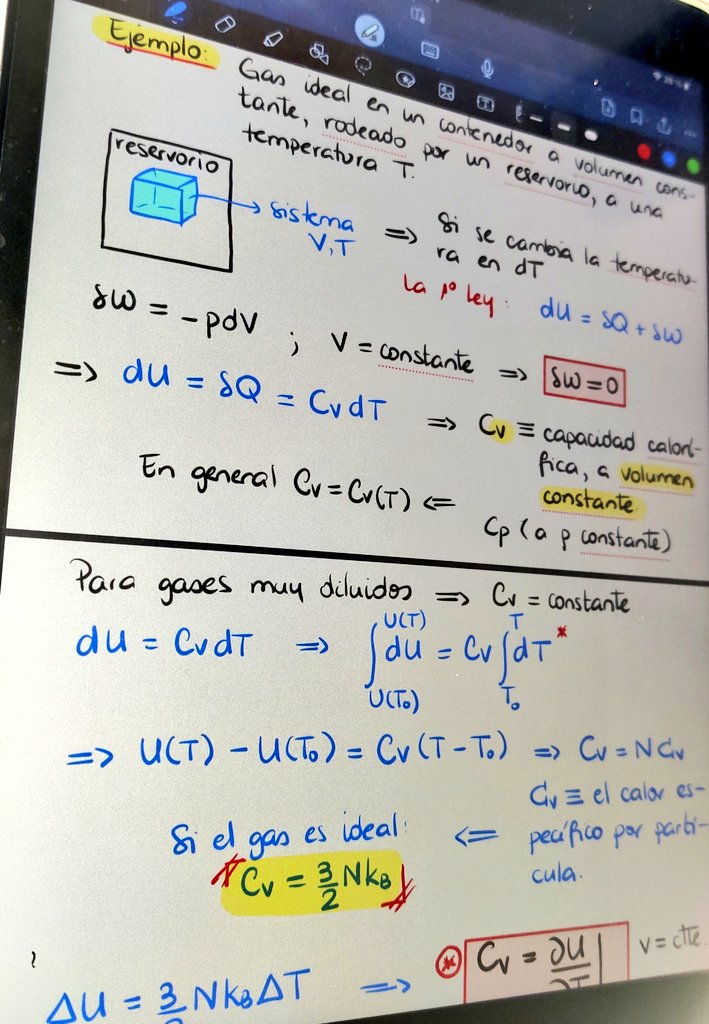 Ejemplo:
Gas ideal en un contenedor a volumen cons-
tante, rodeado por un reservorio, a una
temperatura T.
reservorio
sistema
V,T
=> Si se cambia la temperatu-
ra en dT
La 1º ley: dU = δQ + δW
δW = -pdV ; V = constante => δW = 0
=> dU = δQ = CvdT => Cv ≡ capacidad calorí-
fica, a volumen
constante
En general Cv = Cv(T) <=
Cp (a p constante)
Para gases muy diluidos => Cv = constante
dU = CvdT => ∫_{U(T₀)}^{U(T)} dU = Cv ∫_{T₀}^{T} dT *
=> U(T) - U(T₀) = Cv(T - T₀) => Cv = N cv
cv ≡ el calor es-
pecífico por partí-
cula.
<=
Si el gas es ideal:
Cv = 3/2 NkB
ΔU = 3/2 NkBΔT => * Cv = ∂U/∂T | V = cte.